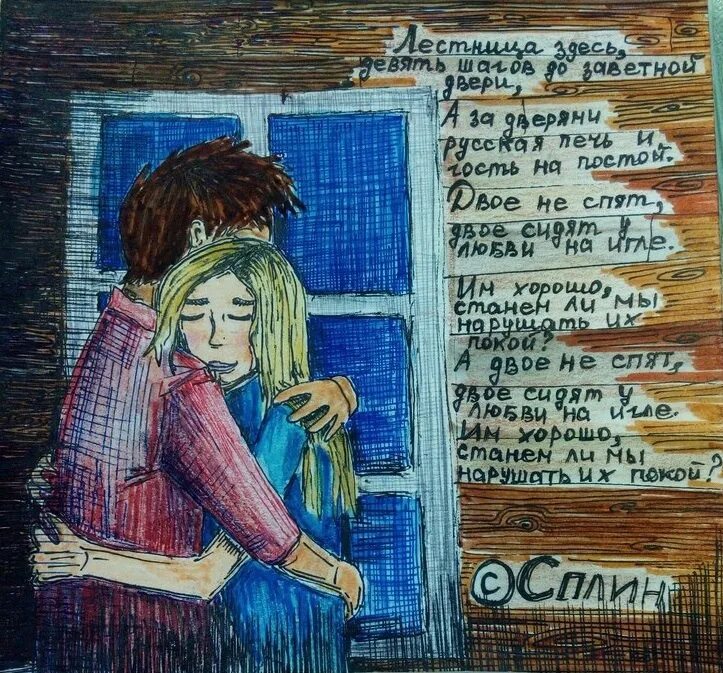 Лестница здесь,
девять шагов до заветной
двери,
А за дверями
русская печь и
гость на постой.
Двое не спят,
двое сидят у
любви на игле.
Им хорошо,
станем ли мы
нарушать их
покой?
А двое не спят,
двое сидят у
любви на игле.
Им хорошо,
станем ли мы
нарушать их покой?
©Сплин